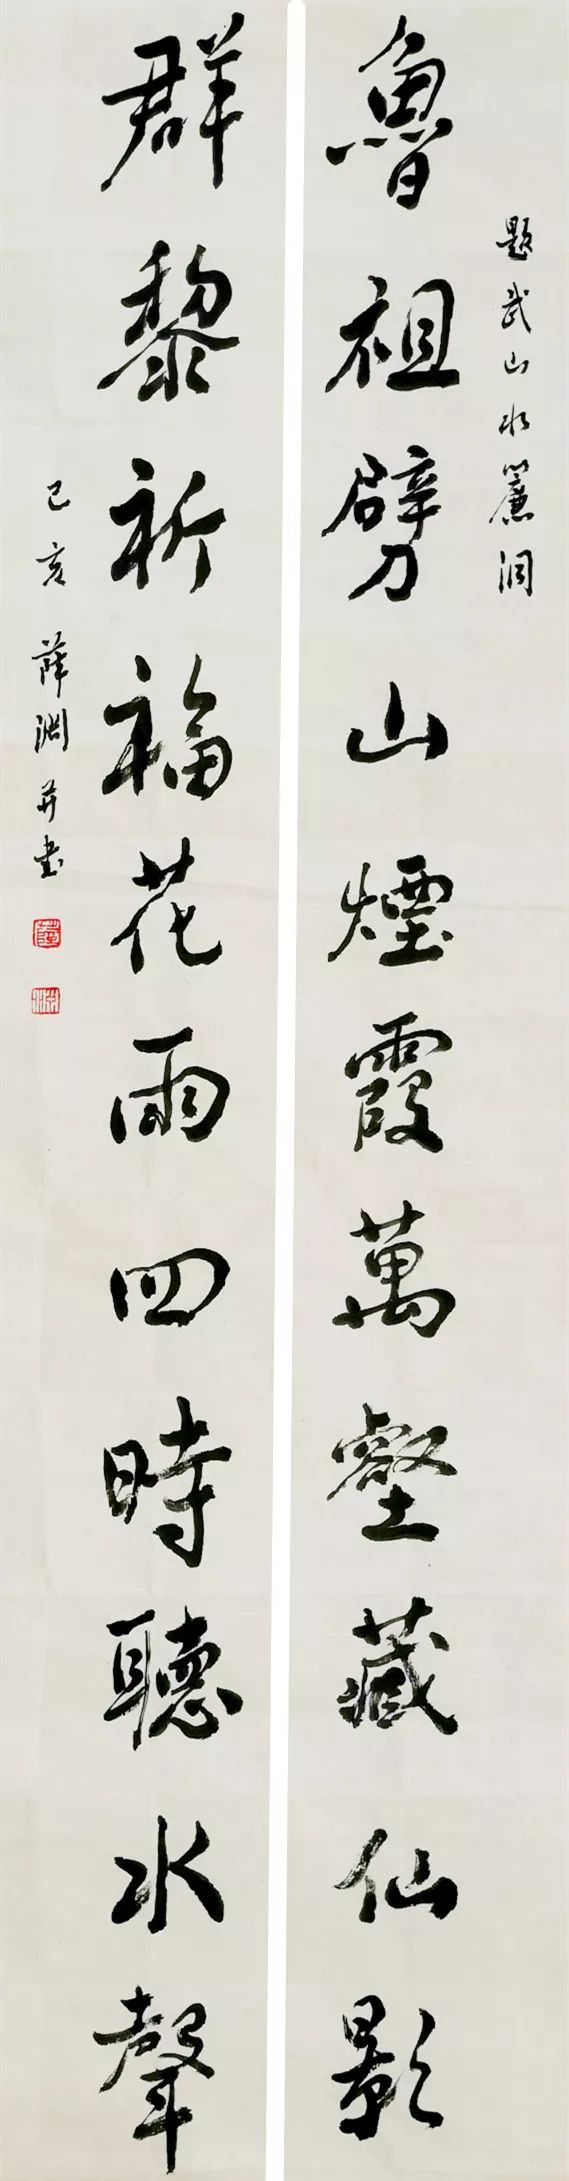 題武山水簾洞
魯祖劈山煙霞萬壑藏仙影
群黎祈福花雨四時聽水聲
己亥薛淵并書